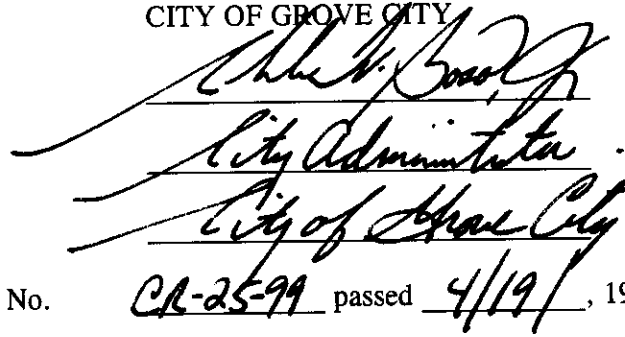 CITY OF GROVE CITY
City Administrator
City of Grove City
No. CR-25-99 passed 4/19/, 19